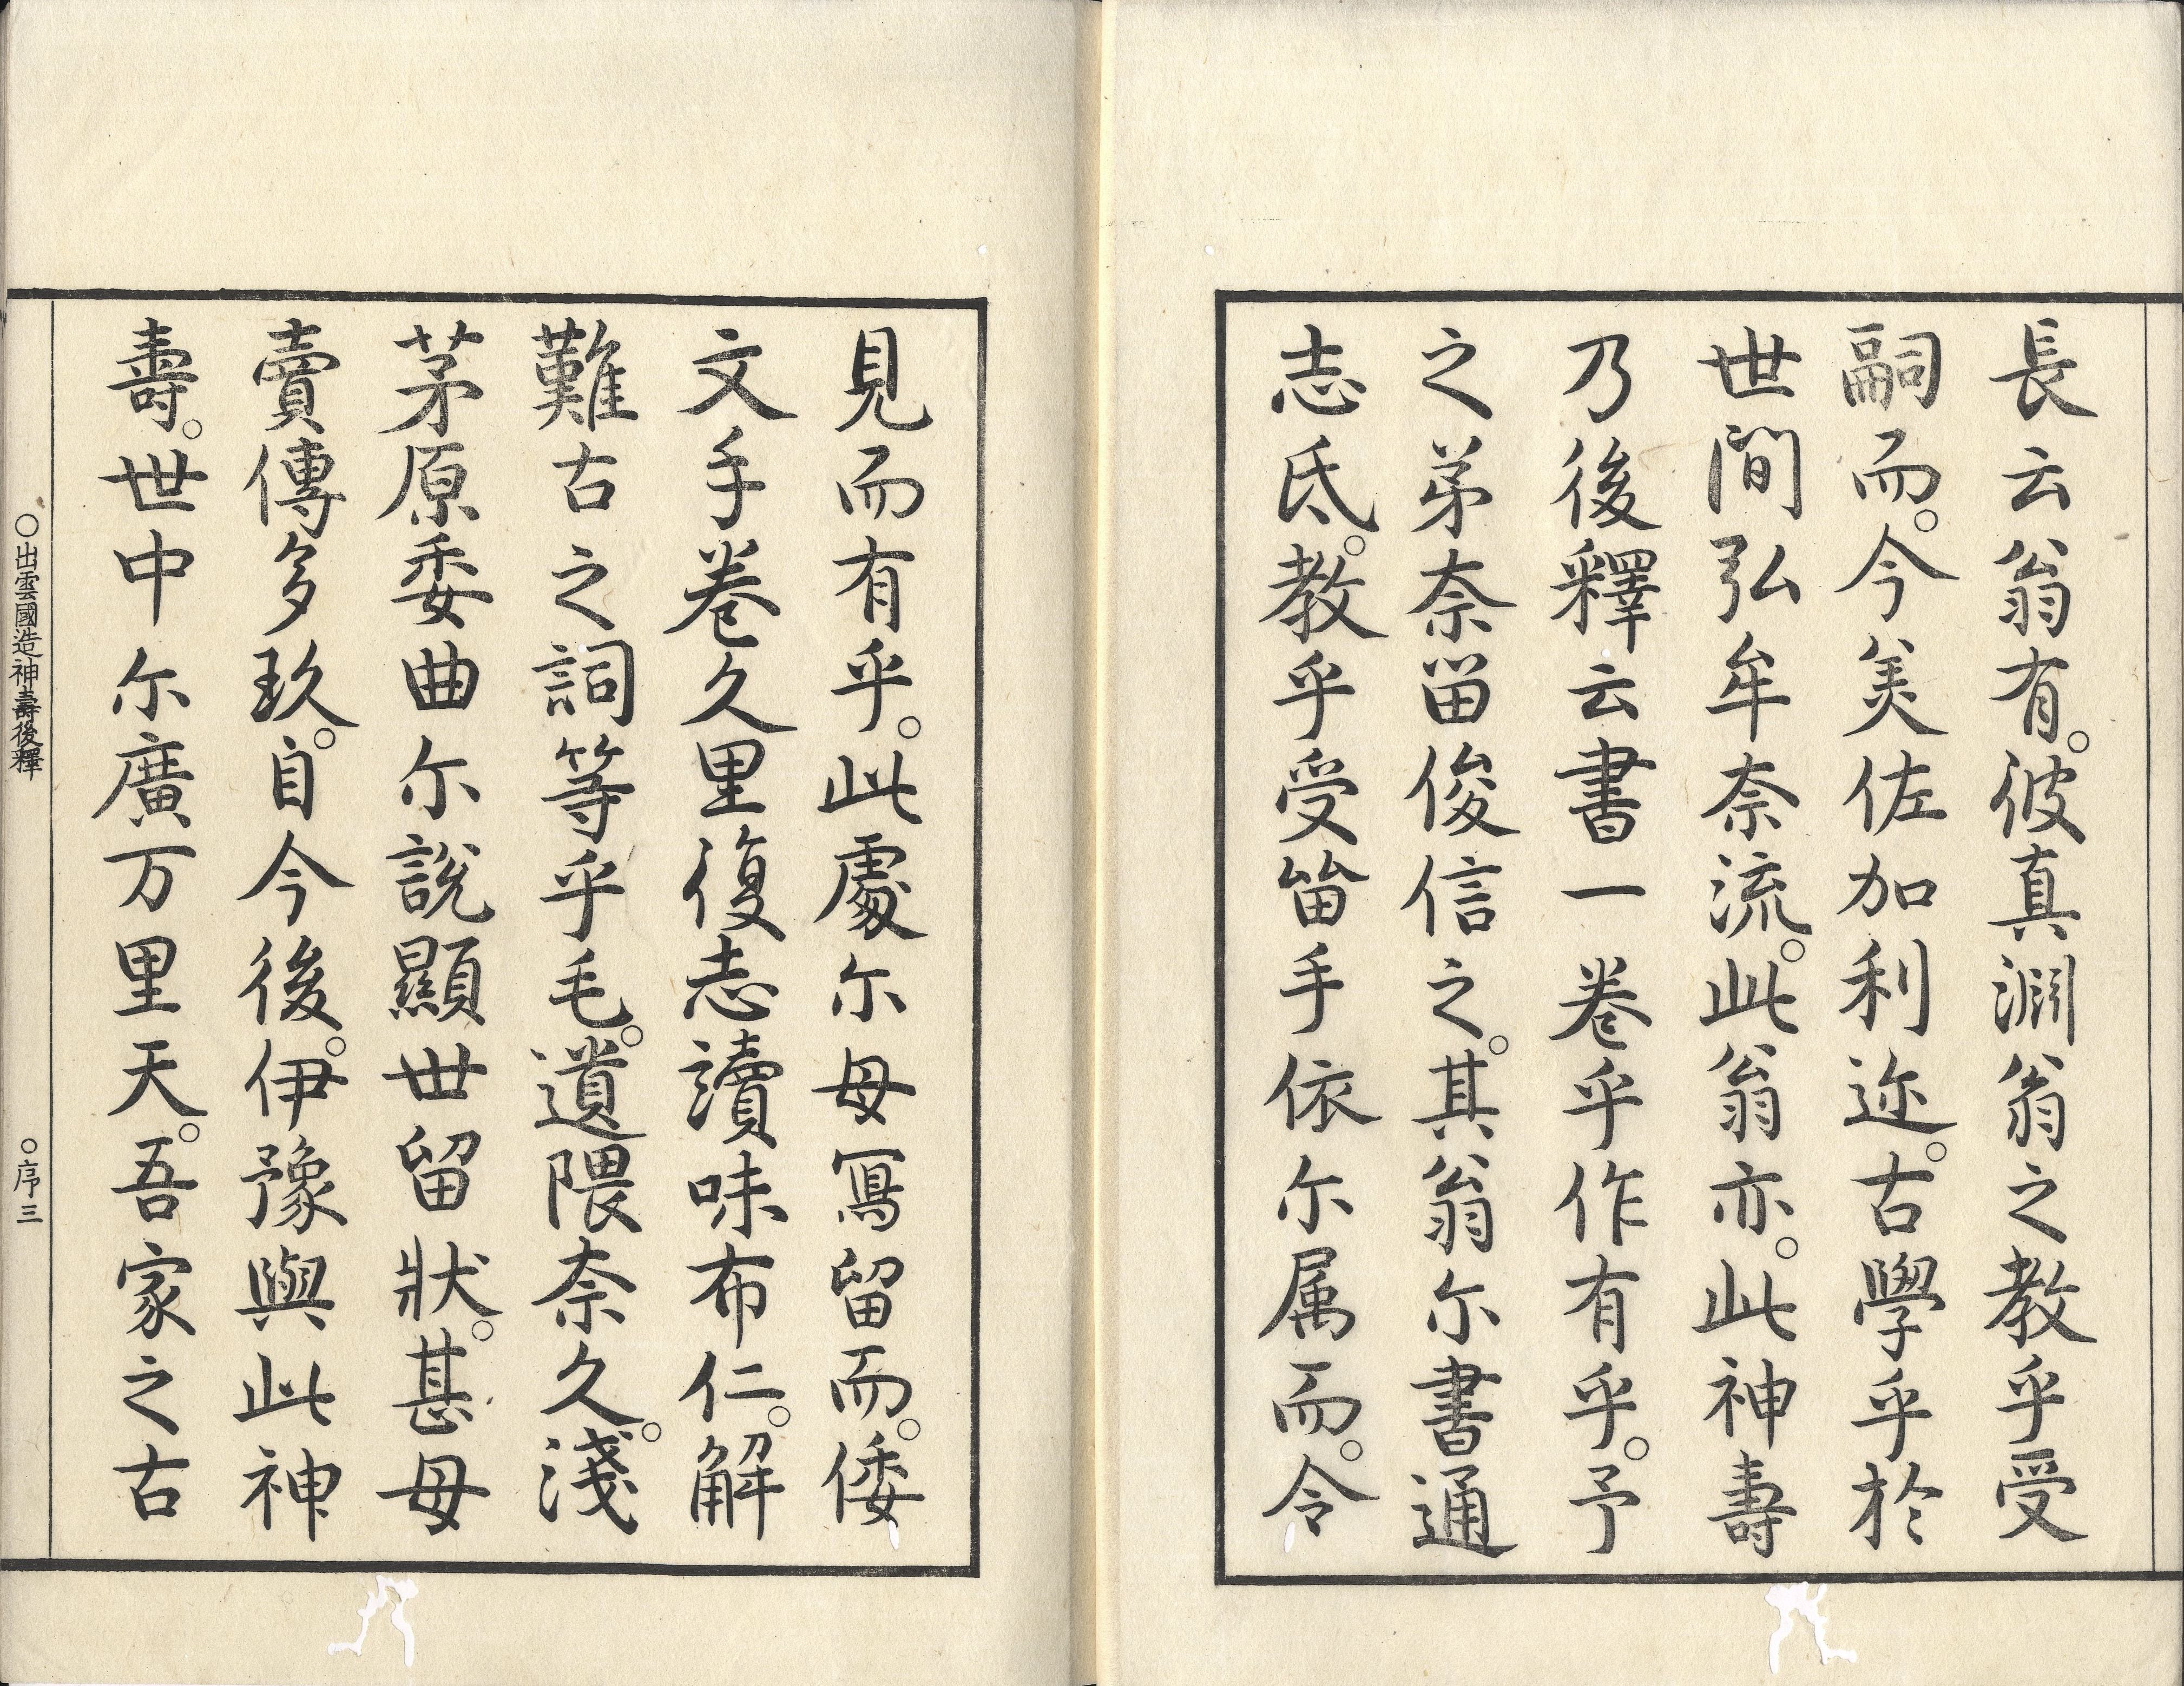 長云翁有。彼真淵翁之教乎受
嗣而。今美佐加利迩。古學乎於
世間弘牟奈流。此翁亦。此神壽
乃後釋云書一卷乎作有乎。予
之弟奈留俊信之。其翁尓書通
志氐。教乎受留手依尓属而。令
見而有乎。此處尓母寫留而。倭
文手卷久里復志讀味布仁。解
難古之詞等乎毛。遺隈奈久。淺
茅原委曲尓說顯世留狀。甚母
賣傳多玖。自今後。伊豫與此神
壽。世中尓廣万里天。吾家之古
○出雲國造神壽後釋
○序三